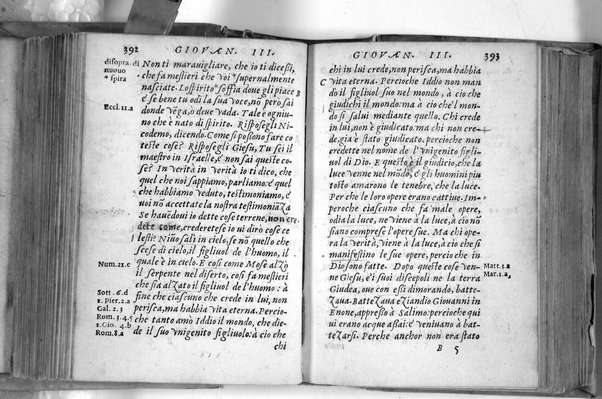 392 GIOVAN. III.
disopra. di
nuouo
spira
Eccl. 11.a
Num. 21.c
Sott. 6.d
1. Piet. 2.a
Gal. 2.3
Rom. 3.4.5
1. Gio. 4.b
Rom. 8.a
Non ti marauigliare, che io ti dicessi,
che fa mestieri che voi *supernalmente
nasciate. Lo spirito *soffia doue gli piace B
e se bene tu odi la sua voce, nõ pero sai
donde vẽga, o doue vada. Tale è ogniu-
no che è nato di spirito. Rispose gli Ni-
codemo, dicendo. Come si possono fare co
teste cose? Rispose gli Giesu, Tu sei il
maestro in Israelle, e non sai queste co-
se? In verità in verità io ti dico, che
quel che noi sappiamo, parliamo: e quel
che habbiamo veduto, testimoniamo, e
uoi nõ accettate la nostra testimoniãza
Se hauẽdoui io dette cose terrene, non cre
dete come, crederete se io ui dirò cose ce
lesti? Niũo salì in cielo, se nõ quello che
scese di cielo, il figliuol de l'huomo, il
quale è in cielo. E così come Mose alzò
il serpente nel diserto, così fa mestieri
che sia alzato il figliuol de l'huomo: à
fine che ciascuno che crede in lui, non
perisca, ma habbia vita eterna. Percio-
che tanto amò Iddio il mondo, che die-
de il suo vnigenito figliuolo: à cio che
chi
GIOVAN. III. 393
chi in lui crede, non perisca, ma habbia
C vita eterna. Percioche Iddio non man
dò il figliuol suo nel mondo, à cio che
giudichi il mondo: ma à cio che'l mon-
do si salui mediante quello. Chi crede
in lui, non è giudicato. ma chi non cre-
de, gia è stato giudicato. percioche non
credette nel nome de l'vnigenito figliu-
uol di Dio. E questo è il giudicio, che la
luce venne nel mõdo, e gli huomini piu
tosto amarono le tenebre, che la luce.
Per che le loro opere erano cattiue. Im-
peroche ciascuno che fa male opere,
odia la luce, ne viene à la luce, à cio nõ
siano comprese l'opere sue. Ma chi opera
la verità, viene à la luce, à cio che si
manifestino le sue opere, percioche in
Dio sono fatte. Dopo queste cose ven-
ne Giesu, e i suoi discepoli ne la terra
Giudea, oue con essi dimorando, batte-
zaua. Battezaua eziandio Giouanni in
Enone, appresso à Salimo: percioche qui
ui erano acque assai: e veniuano à bat-
tezarsi. Perche anchor non era stato
Matt. 3.a
Mar. 1.a
B 5